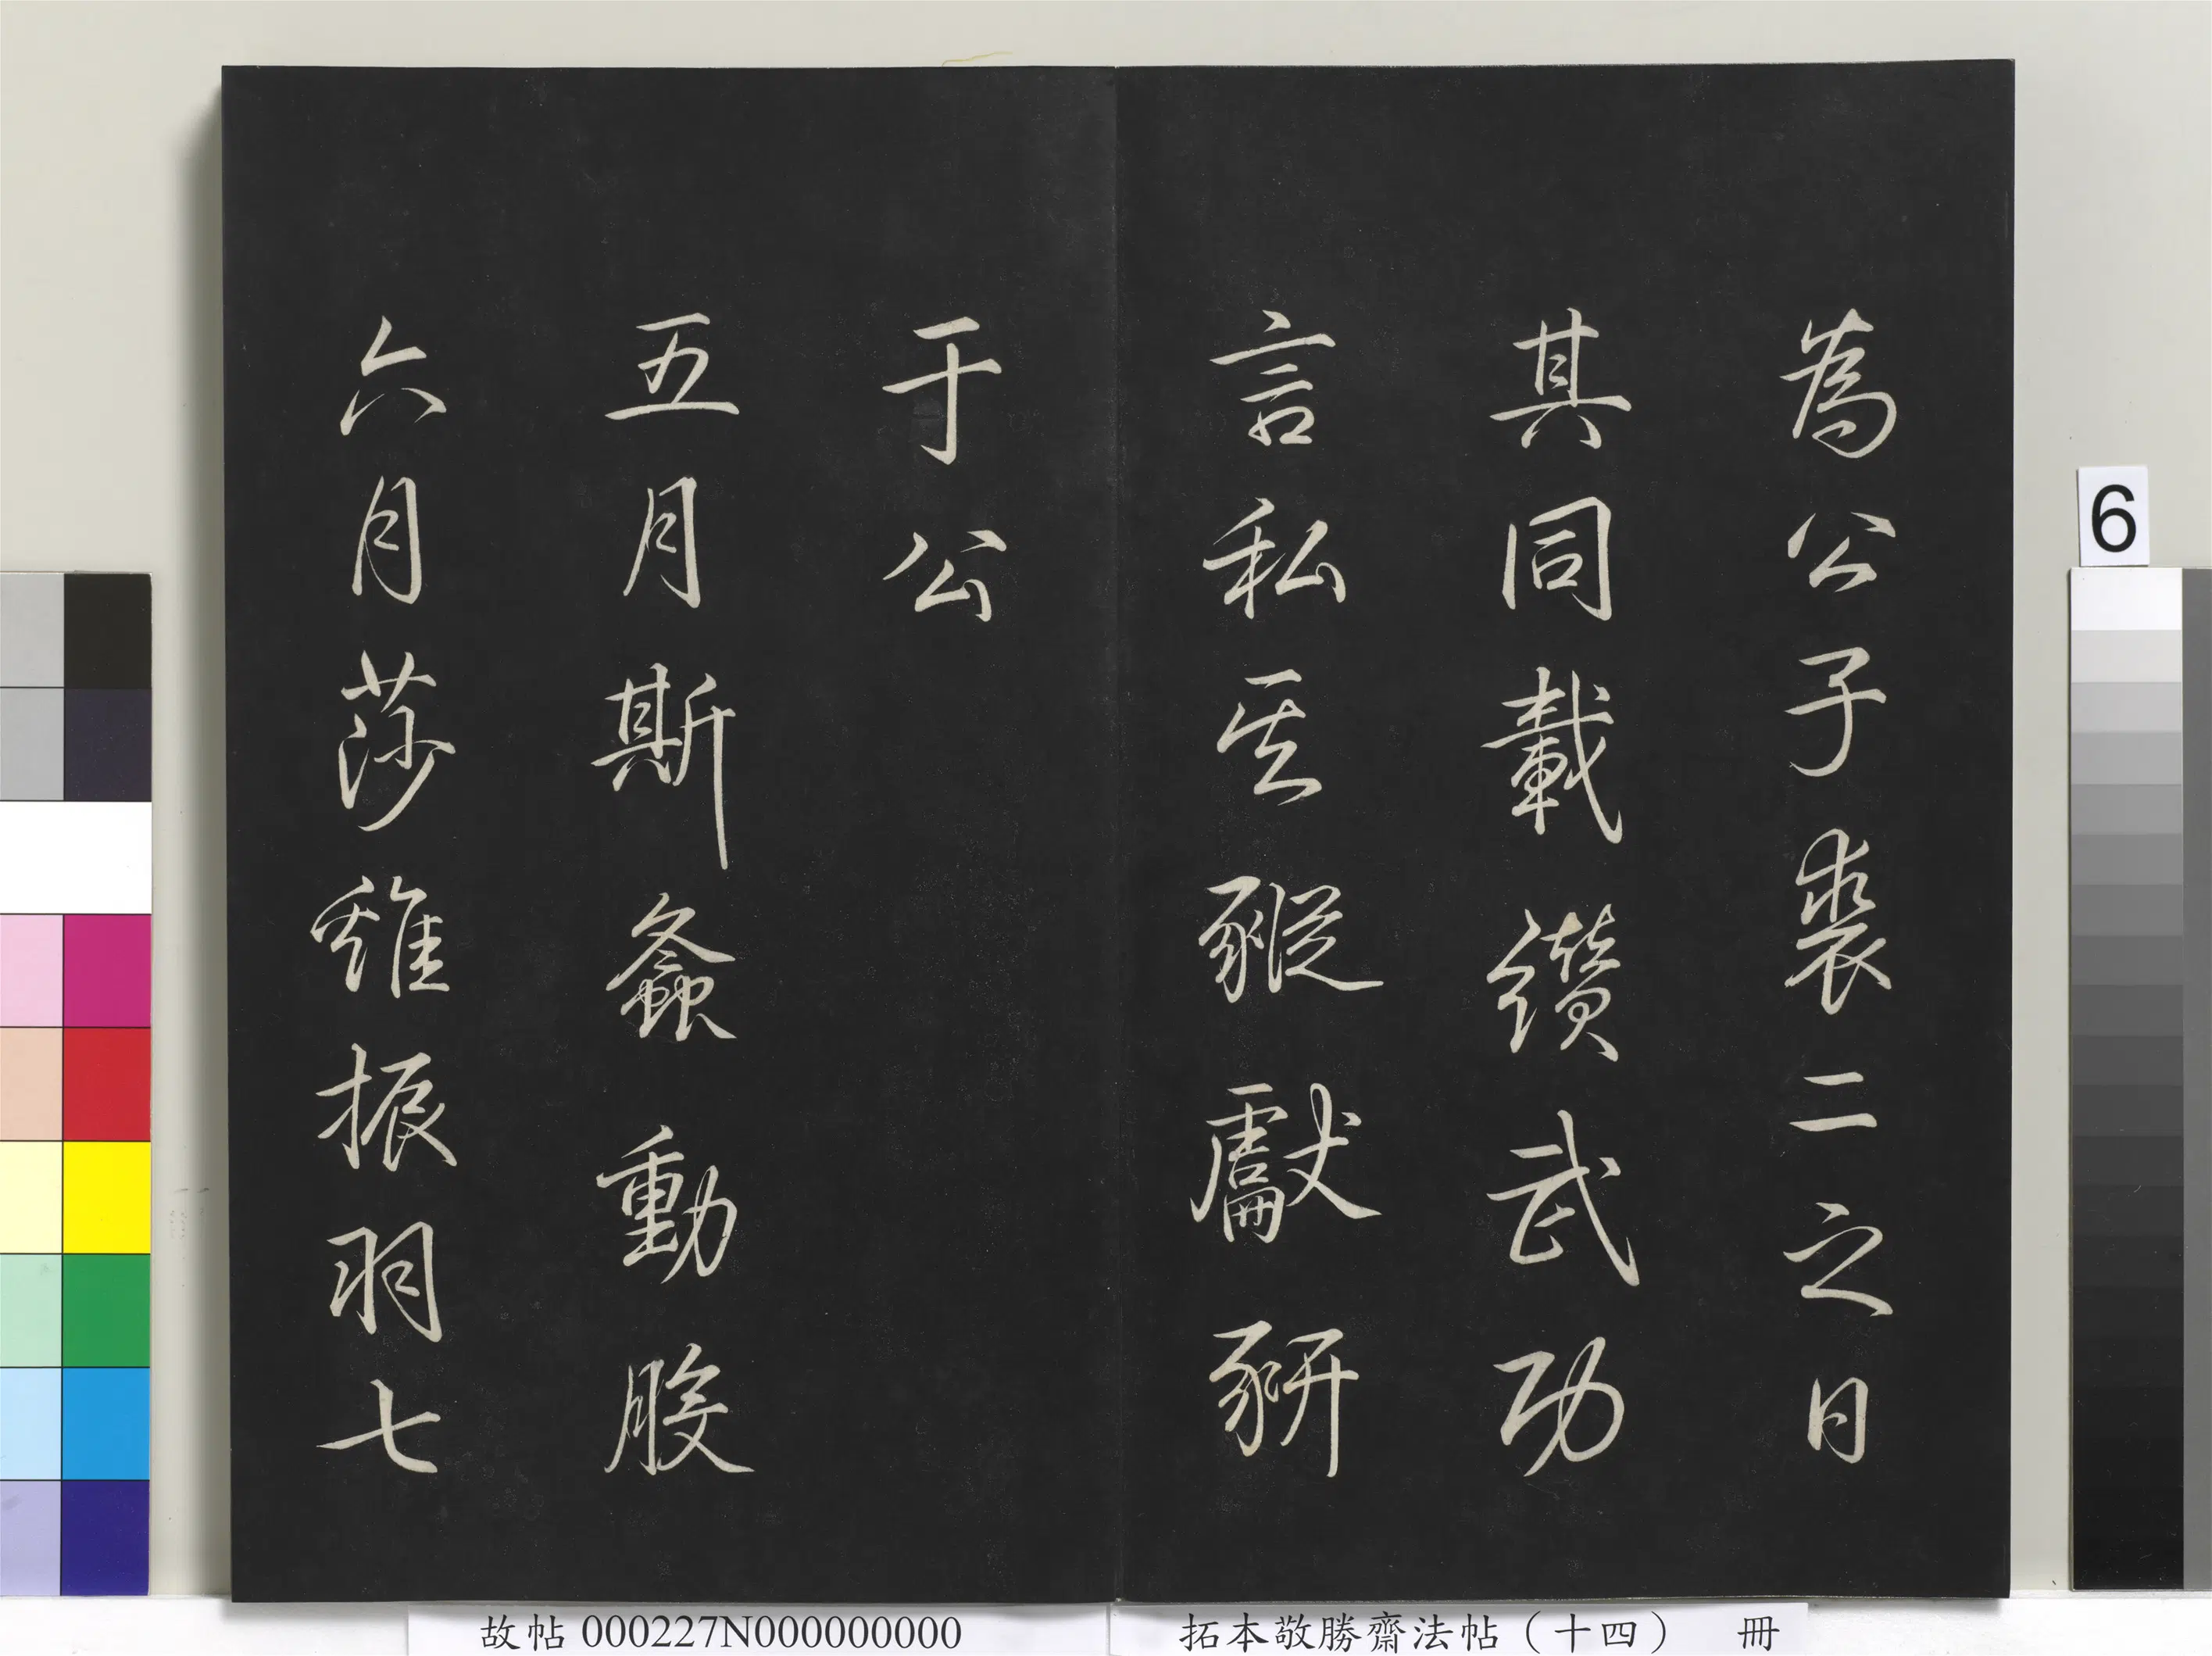 為公子裘二之日
其同載纘武功
言私其豵獻豜
于公
五月斯螽動股
六月莎雞振羽七
6
故帖000227N000000000
拓本敬勝齋法帖（十四） 冊